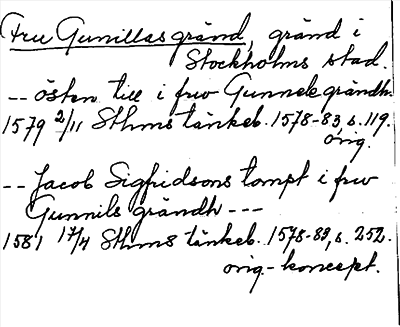 Fru Gunillas gränd, gränd i
Stockholms stad.
-- östen till i frw Gunnelegrändh.
1579 2/11 Sthms tänkeb. 1578-83, s. 119.
orig.
-- Jacob Sigfridsons tompt i frw
Gunnils grändh ---
1581 17/4 Sthms tänkeb. 1578-83, s. 252.
orig.-koncept.